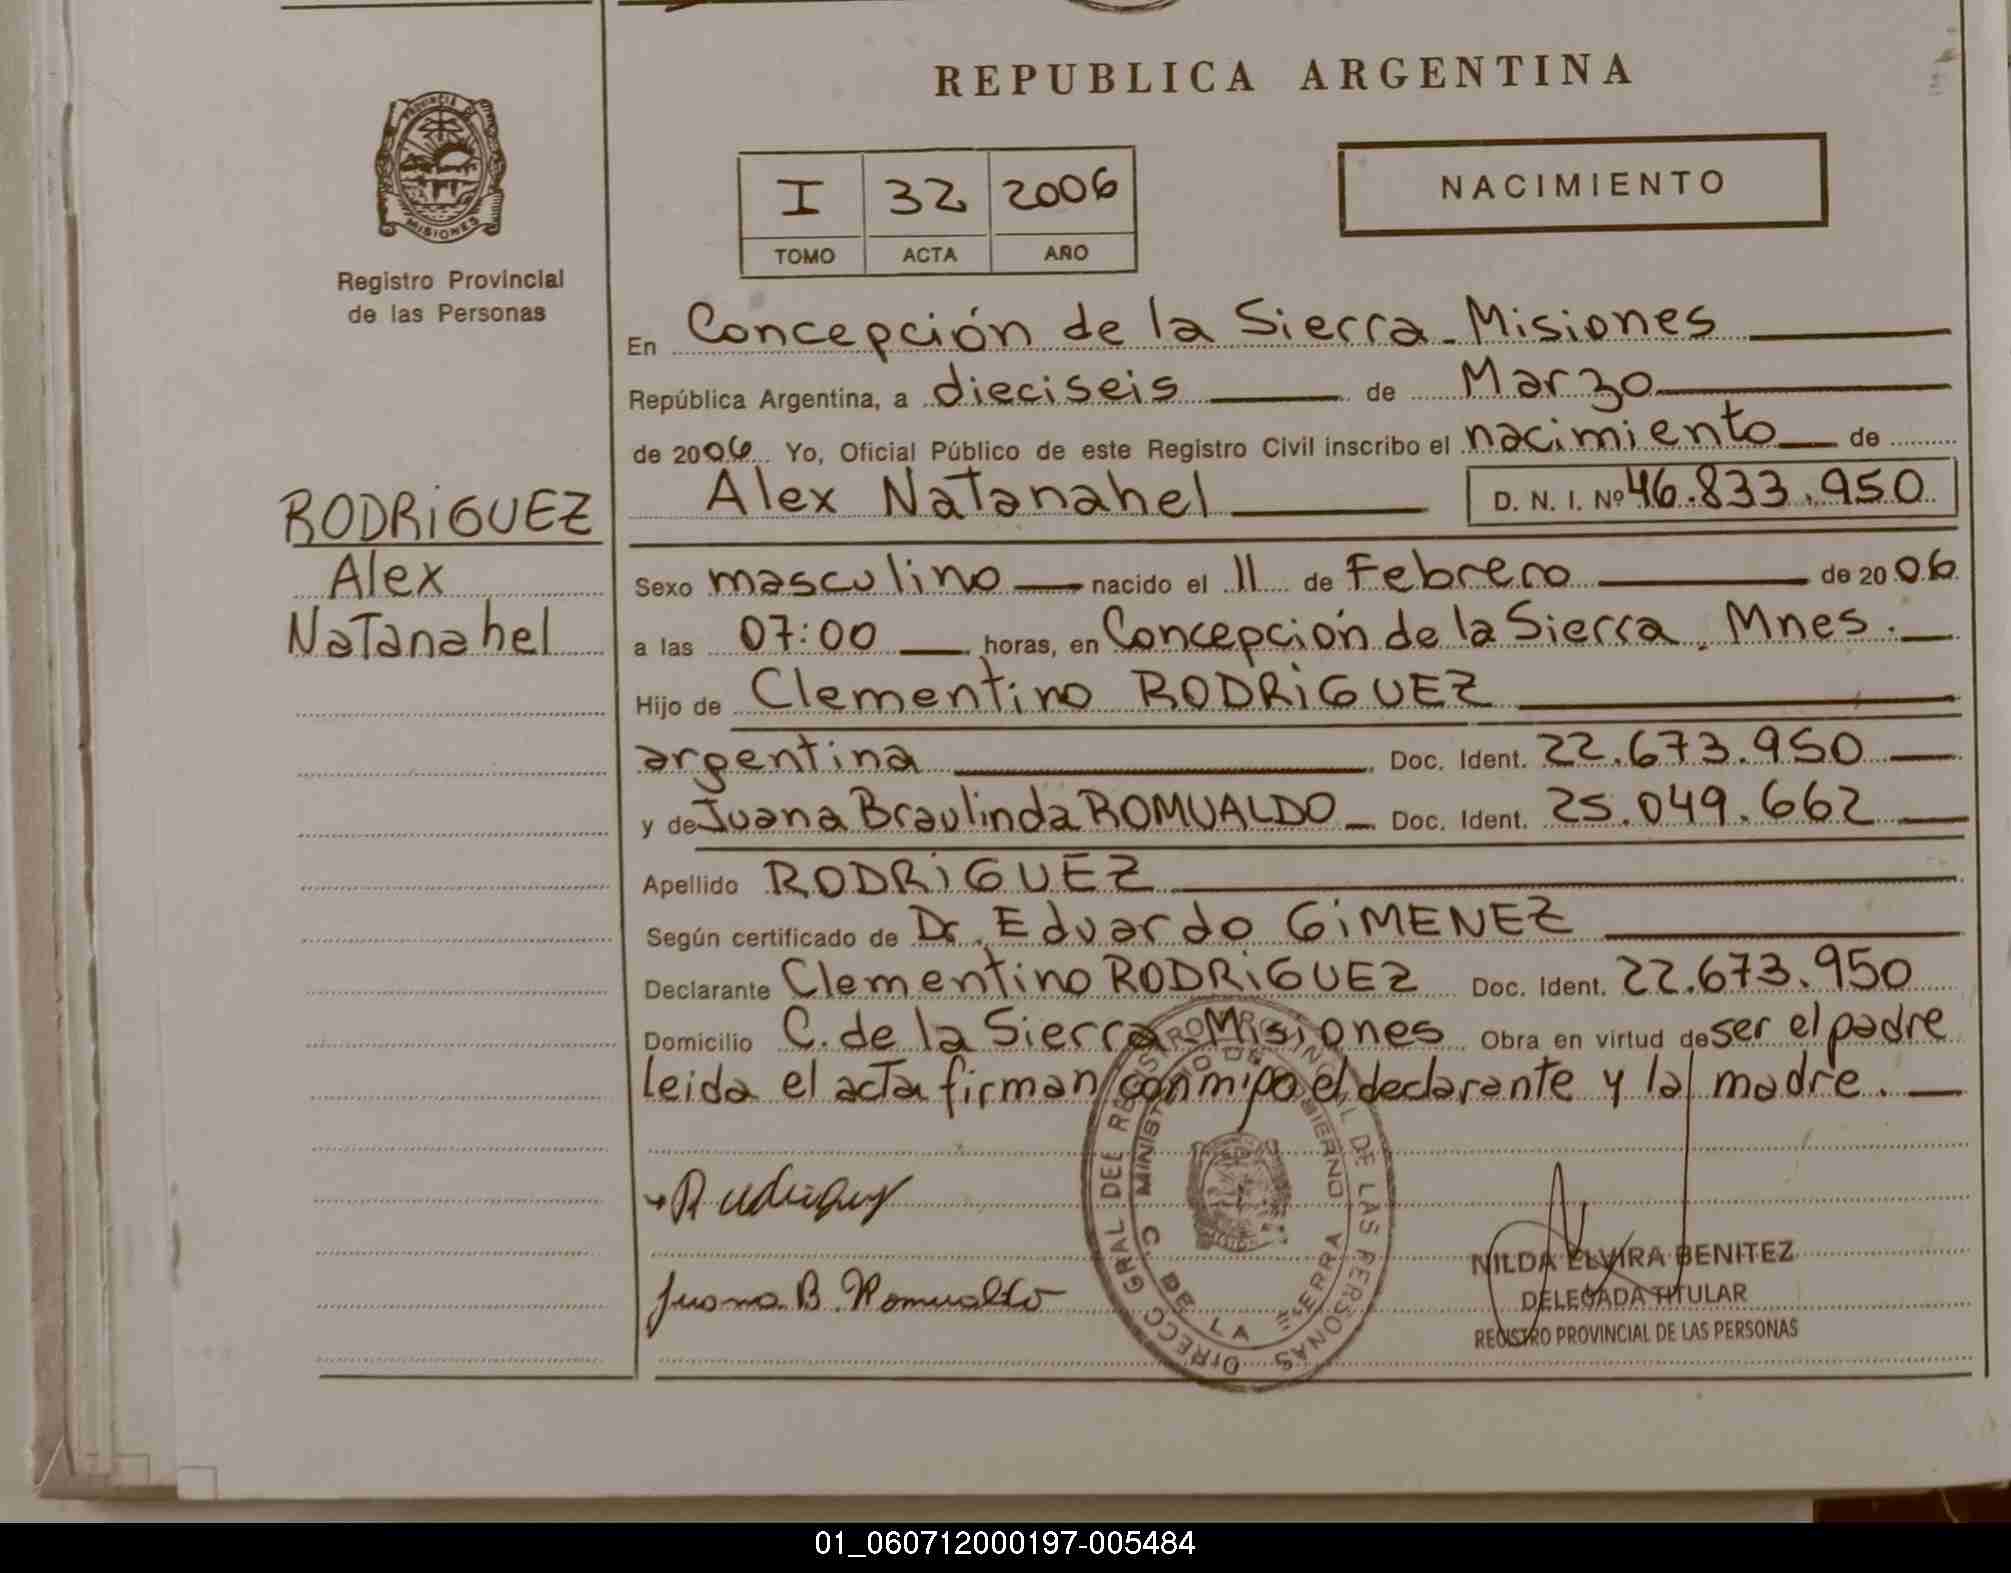 REPUBLICA ARGENTINA
PROVINCIA DE MISIONES
Registro Provincial
de las Personas
I 32 2006
TOMO ACTA AÑO
NACIMIENTO
En Concepción de la Sierra - Misiones
República Argentina, a dieciseis de Marzo
de 2006 Yo, Oficial Público de este Registro Civil inscribo el nacimiento de
Alex Natanahel D. N. I. Nº 46.833.950
RODRiGUEZ
Alex
Natanahel
Sexo masculino nacido el 11 de Febrero de 2006
a las 07:00 horas, en Concepción de la Sierra, Mnes.
Hijo de Clementino RODRiGUEZ
argentina Doc. Ident. 22.673.950
y de Juana Braulinda ROMUALDO Doc. Ident. 25.049.662
Apellido RODRiGUEZ
Según certificado de Dr. Eduardo GiMENEZ
Declarante Clementino RODRiGUEZ Doc. Ident. 22.673.950
Domicilio C. de la Sierra Misiones Obra en virtud de ser el padre
leida el acta firman conmigo el declarante y la madre.
Juana B. Romualdo
DIRECC GRAL DEL REGISTRO PROVINCIAL DE LAS PERSONAS
MINISTERIO DE GOBIERNO
C. DE LA SIERRA
NILDA ELVIRA BENITEZ
DELEGADA TITULAR
REGISTRO PROVINCIAL DE LAS PERSONAS
01_060712000197-005484